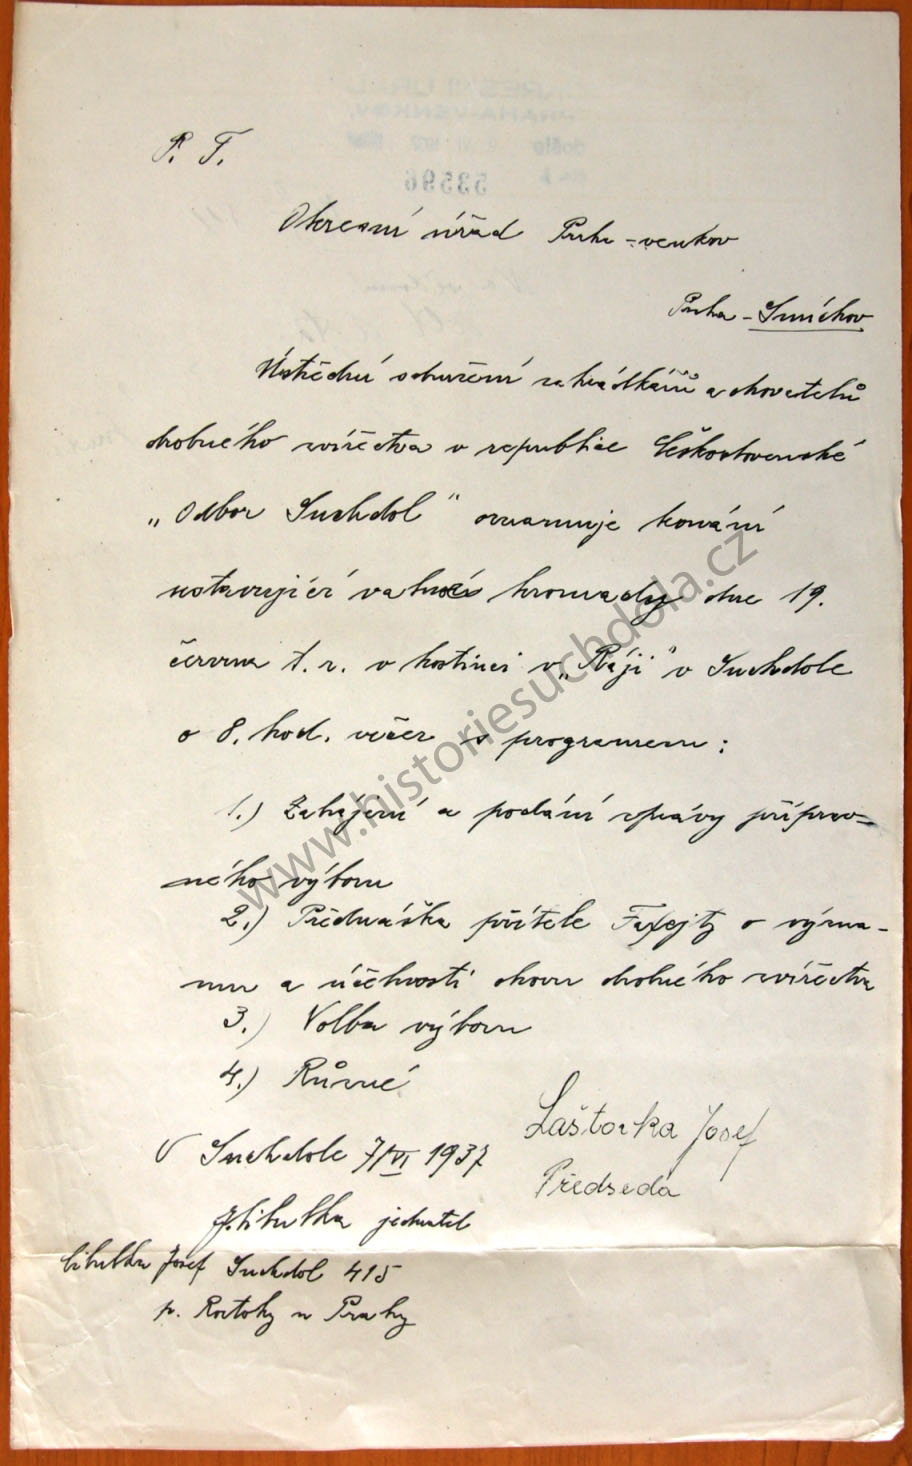 P. T.
Okresní úřad Praha-venkov
Praha-Smíchov
Ústřední sdružení zahrádkářů a chovatelů
drobného zvířectva v republice Československé
„Odbor Suchdol" oznamuje konání
ustavující valné hromady dne 19.
června t. r. v hostinci v „Ráji" v Suchdole
o 8. hod. večer s programem:
1.) Zahájení a podání zprávy příprav-
ného výboru
2.) Přednáška přítele o význa-
mu a účelnosti chovu drobného zvířectva
3.) Volba výboru
4.) Různé
V Suchdole 7/VI 1937
Laštovka Josef
Předseda
J. Cibulka jednatel
Cibulka Josef Suchdol 415
p. Roztoky u Prahy
www.historiesuchdola.cz
53596